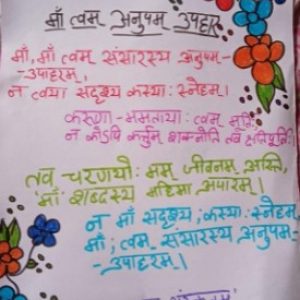 माँ त्वम् अनुपम उपहार
माँ, माँ त्वम् संसारस्य अनुपम-
-उपाहरम्।
न त्वया सदृश्य कस्याः स्नेहम्।
करुणा-ममतायाः त्वम् मूर्ति
न कोऽपि कर्तुम् शक्नोति तव क्षतिपूर्ति।
तव चरणयोः मम् जीवनम् अस्ति,
माँ शब्दस्य महिमा अपारम्।
न माँ सदृश्य, कस्याः स्नेहम्
माँ, त्वम् संसारस्य अनुपम-
-उपाहरम्।